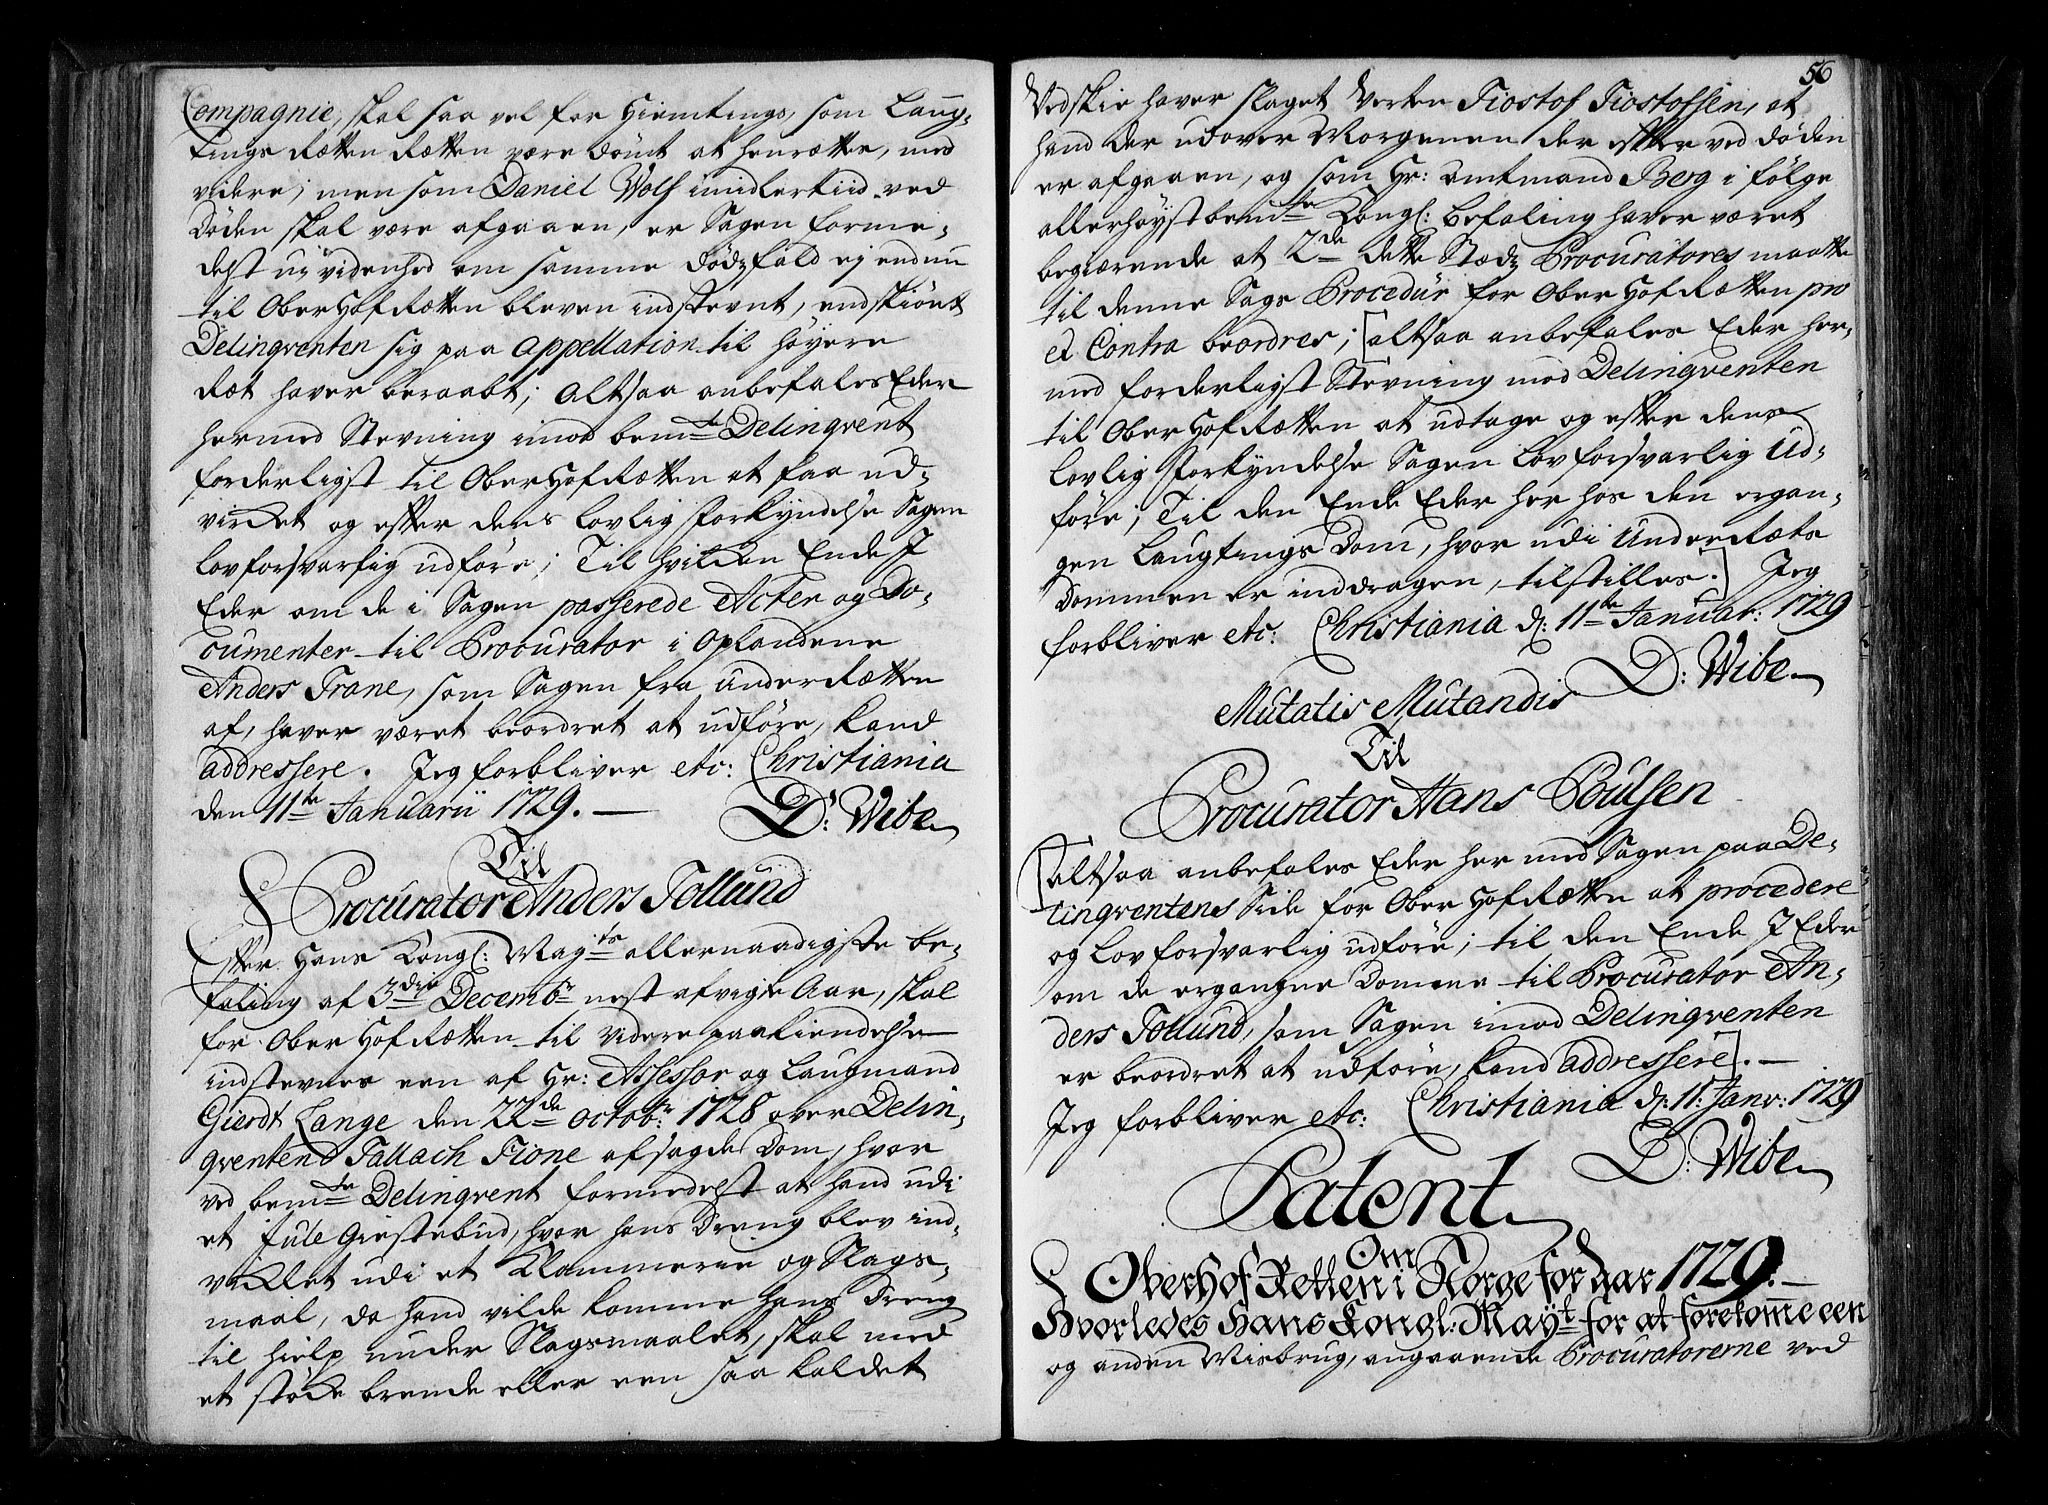 Compagnie, skal saa vel for Hiemtings, som Laug-
tings Rætten Rætten være dömt at henrættes, med
videre; men som Daniel Wolf imidlertiid ved
Döden skal være afgaaen, er Sagen forme-
delst uvidenhed om samme Dödsfald ej endnu
til Ober Hof Rætten bleven indstevnt, endskiönt
Delinqventen sig paa Appellation til höyere
Ræt haver beraabt; Altsaa anbefales Eder
hermed Stevning imod bemte Delinqvent
forderligst til Ober Hof Rætten at faa ud-
virket og efter dens lovlig Forkyndelse Sagen
lovforsvarlig udföre; Til hvilken Ende I
Eder om de i Sagen passerede Acter og Do-
cumenter til Procurator i Oplandene
Anders Trane, som Sagen fra underRætten
af, haver været beordret at udföre, kand
addressere. Jeg forbliver etc: Christiania
den 11te Januarii 1729.
D: Wibe
Til
Procurator Anders Tollund
Efter Hans Kongl: Mayts allernaadigste be-
faling af 3die Decembr nest afvigte Aar, skal
for Ober Hof Rætten til videre paakiendelse
indstevnes een af Hr: Assessor og Laugmand
Gierdt Lange den 22de Octobr: 1728 over Delin-
qventen Tallach Fione afsagde Dom, hvor
ved bemte Delinqvent formedelst at hand udi
et Jule Giestebud, hvor hans Dreng blev ind-
viklet udi et Klammerie og Slags-
maal, da hand vilde komme hans Dreng
til hielp under Slagsmaalet, skal med
et støcke brende eller een saa kaldet
56
Vedskie haver slaget Verten Tiostof Tiostofsen, at
hand der udover Morgenen der efter ved döden
er afgaaen, og som Hr: Amtmand Berg i fölge
allerhöystbemte Kongl: befaling haver været
begiærende at 2de dette Stæds Procuratores maatte
til denne Sags Procedür for Ober Hof Rætten pro
et Contra beordres; [altsaa anbefales Eder her-
med forderligst Stevning mod Delinqventen
til Ober Hof Rætten at udtage og efter dens
lovlig Forkyndelse Sagen lovforsvarlig ud-
före; Til den Ende Eder her hos den ergan-
gen Laugtings Dom, hvor udi UnderRæts
Dommen er inddragen, tilstilles.] Jeg
forbliver etc: Christiania d: 11te Januar: 1729
D: Wibe
Mutatis Mutandis
Til
Procurator Hans Poulsen
[altsaa anbefales Eder her med Sagen paa De-
linqventens Side for Ober Hof Rætten at procedere
og lovforsvarlig udföre; til den Ende I Eder
om de ergangne Domme til Procurator An-
ders Tollund, som Sagen imod Delinqventen
er beordret at udföre, kand addressere]. —
Jeg forbliver etc: Christiania d: 11: Janv: 1729
D: Wibe
Patent
Om
OberHof Retten i Norge for Aar 1729. —
Hvorledes Hans Kongl: Mayt for at forekomme een
og anden Misbrug, angaaende Procuratorerne ved